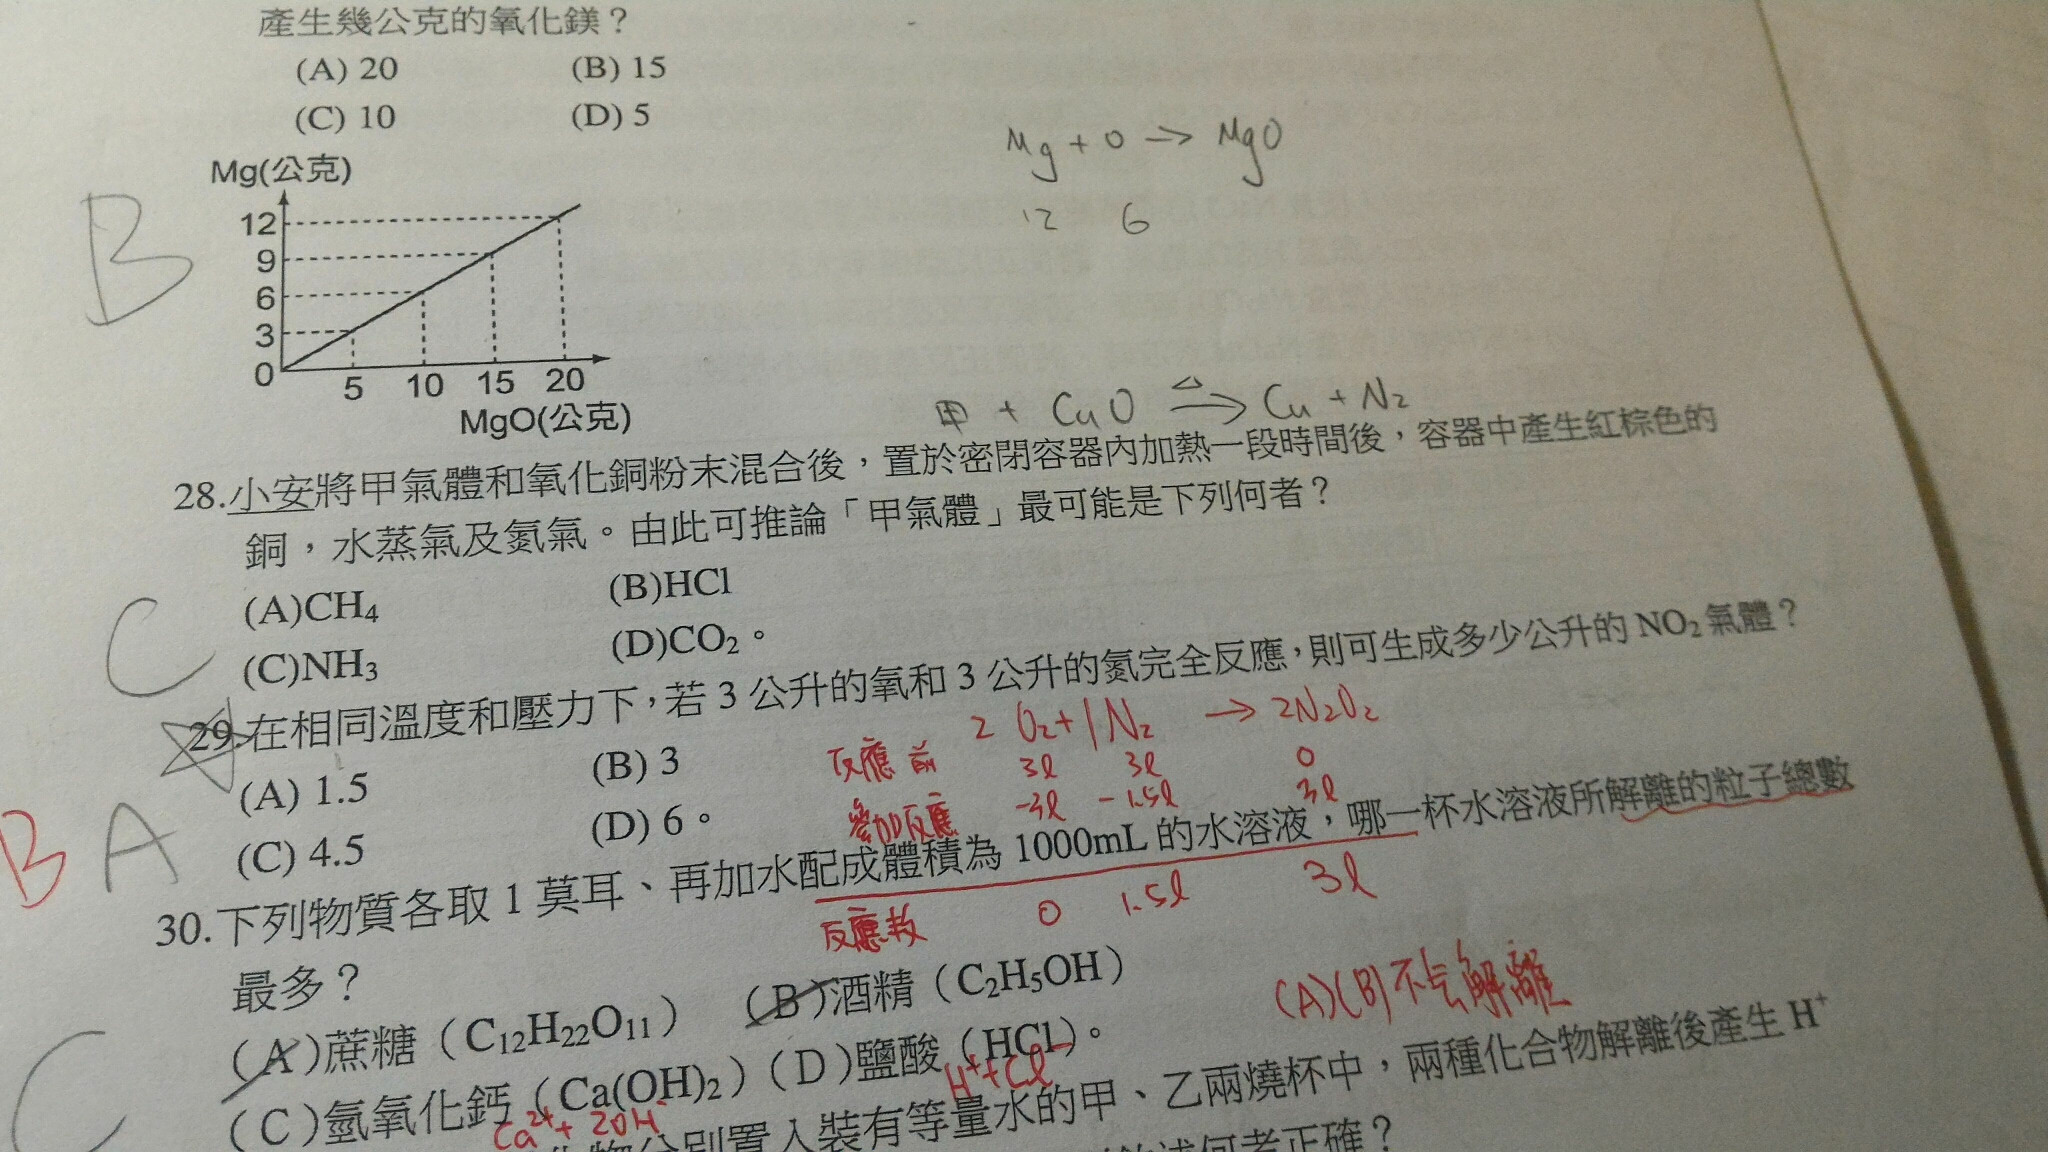 產生幾公克的氧化鎂？
(A) 20 (B) 15
(C) 10 (D) 5
Mg + O → MgO
12 6
B
Mg(公克)
12
9
6
3
0
5 10 15 20
MgO(公克)
甲 + CuO △→ Cu + N₂
28.小安將甲氣體和氧化銅粉末混合後，置於密閉容器內加熱一段時間後，容器中產生紅棕色的
銅，水蒸氣及氮氣。由此可推論「甲氣體」最可能是下列何者？
(A)CH₄ (B)HCl
C
(C)NH₃ (D)CO₂。
29.在相同溫度和壓力下，若 3 公升的氧和 3 公升的氮完全反應，則可生成多少公升的 NO₂ 氣體？
2 O₂ + 1 N₂ → 2N₂O₂
(A) 1.5 (B) 3
反應前 3l 3l 0
B A
(C) 4.5 (D) 6。
參加反應 -3l -1.5l 3l
30.下列物質各取 1 莫耳、再加水配成體積為 1000mL 的水溶液，哪一杯水溶液所解離的粒子總數
反應 0 1.5l 3l
最多？
(A)蔗糖（C₁₂H₂₂O₁₁） (B)酒精（C₂H₅OH）
(A)(B)不 解離
C
(C)氫氧化鈣（Ca(OH)₂）(D)鹽酸（HCl）。
Ca²⁺ + 2OH⁻ H⁺ + Cl⁻
物分別置入裝有等量水的甲、乙兩燒杯中，兩種化合物解離後產生 H⁺
何者正確？